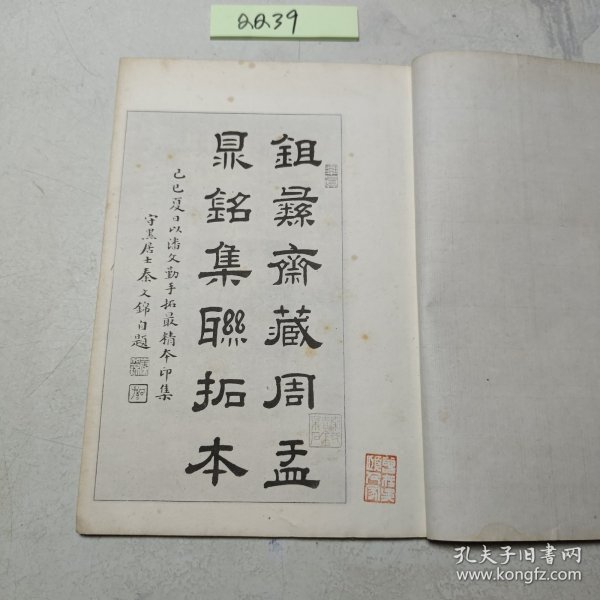 2239
鉏彝齋藏周盂
鼎銘集聯拓本
己巳夏日以潘文勤手拓最精本印集
守黑居士秦文錦自題
孔夫子旧书网
www.kongfz.com